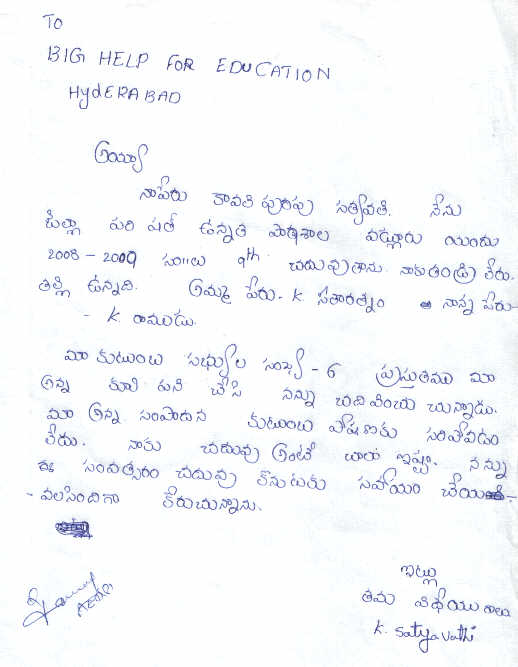 To
BIG HELP FOR EDUCATION
HydERABAD
అయ్యా
నాపేరు కావటి పురపు సత్యవతి. నేను
జిల్లా పరి షత్ ఉన్నత పాఠశాల వడ్లూరు యందు
2008 - 2009 సం॥లు 9th చదువుతాను. నాకు తండ్రి లేరు.
తల్లి ఉన్నది. అమ్మ పేరు - K. సీతారత్నం నాన్న పేరు -
- K. రాముడు.
మా కుటుంబ సభ్యుల సంఖ్య - 6 ప్రస్తుతము మా
అన్న కూలి పని చేసి నన్ను చదివించు చున్నాడు.
మా అన్న సంపాదన కుటుంబ పోషణకు సరిపోవడం
లేదు. నాకు చదువు అంటే చాలా ఇష్టం. నన్ను
ఈ సంవత్సరం చదువు కొనుటకు సహాయం చేయ-
- వలసిందిగా కోరుచున్నాను.
ఇట్లు
తమ విధేయురాలు
K. Satyavathi